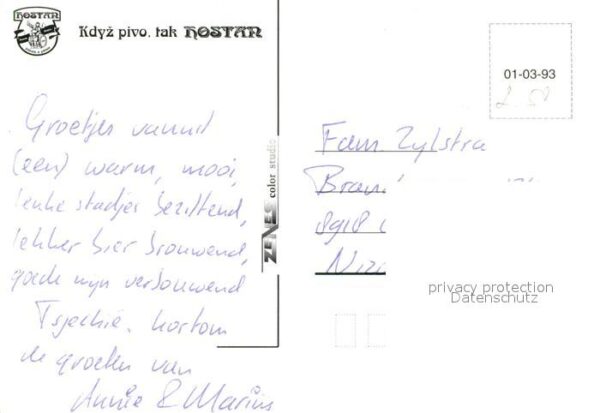 HOSTAN
Když pivo, tak HOSTAN
01-03-93
Groetjes vanuit
(een) warm, mooi,
leuke stadjes bezittend,
lekker bier brouwend,
goede wijn verbouwend
Tsjechië. kortom
de groeten van
Annie & Marius
ZENES color studio
Fam Zylstra
8918
privacy protection
Datenschutz